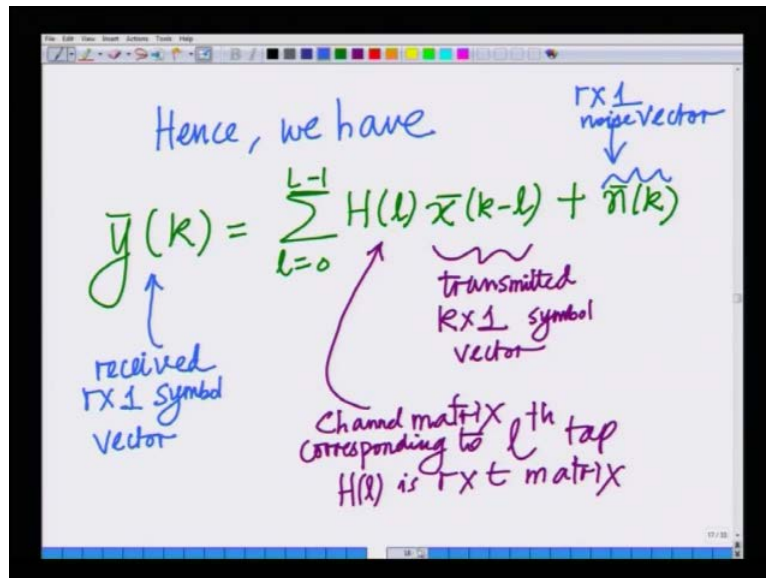 File Edit View Insert Actions Tools Help
Hence, we have
r×1
noise vector
ȳ(k) = ∑_{l=0}^{L-1} H(l) x̄(k-l) + n̄(k)
transmitted
k×1 symbol
vector
received
r×1 symbol
vector
Channel matrix
corresponding to lth tap
H(l) is r×t matrix
17/18
18